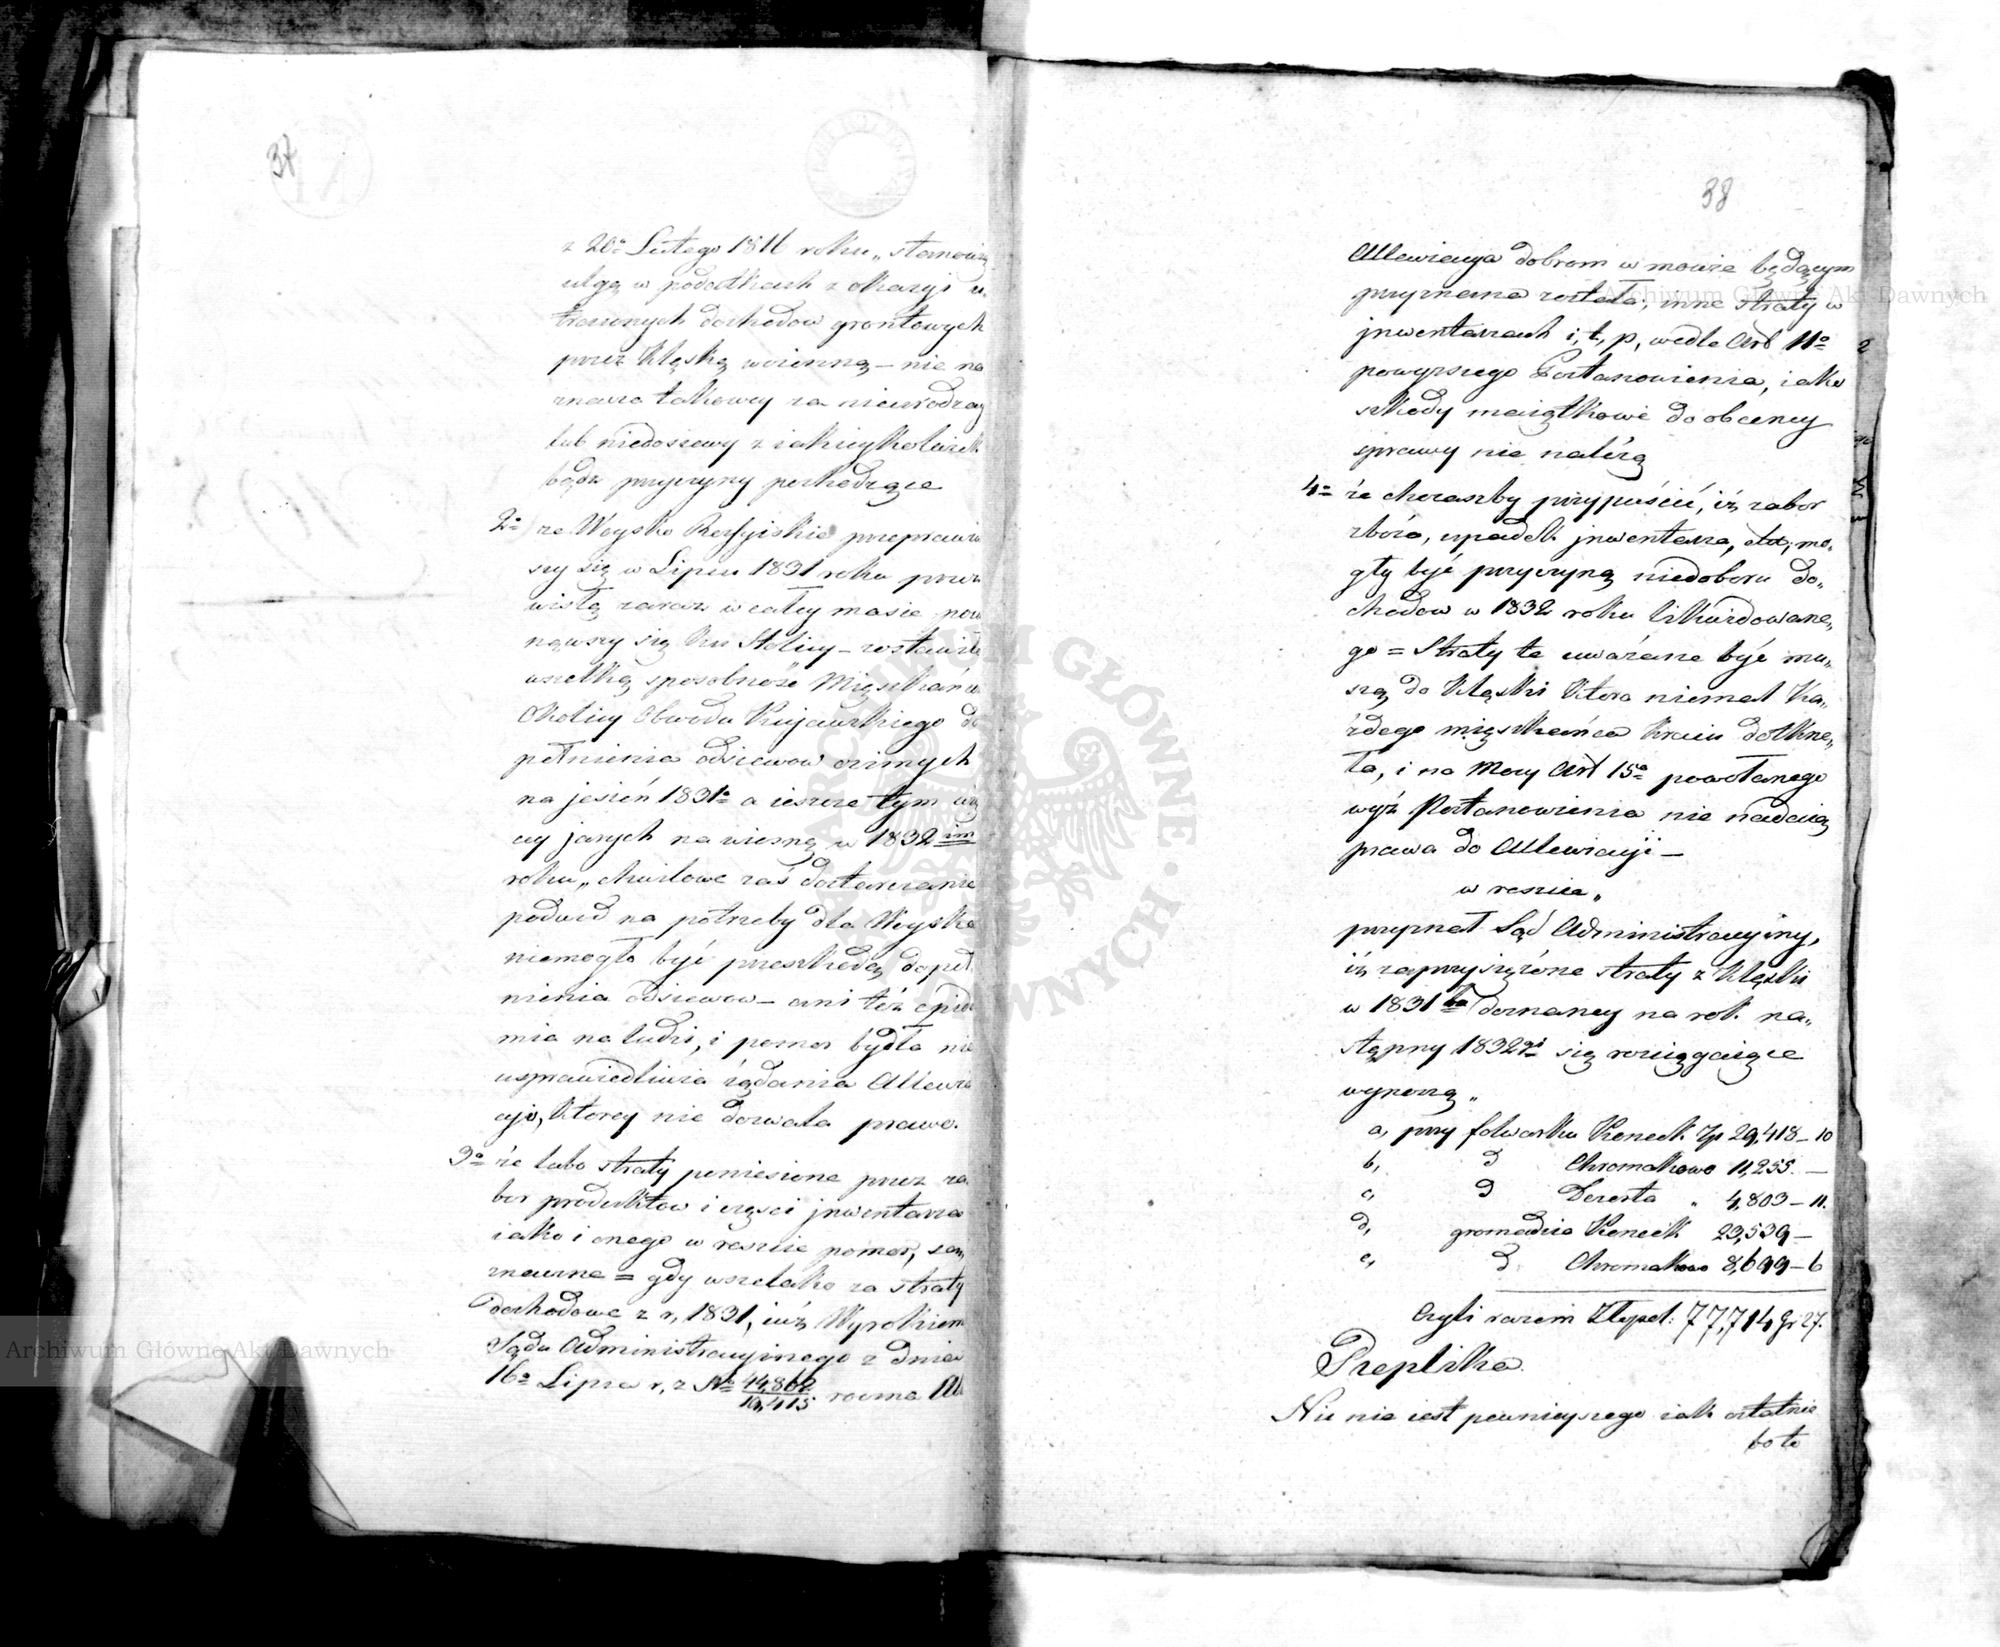 37
z 20o Lutego 1816 roku „ stanowiąc
ulgę w podatkach z okazyi u„
traconych dochodow grontowych
przez klęskę woienną – nie na
znacza takowey za nieurodzay
lub niedosiewy z iakieykolwiek
bądz przyczyny pochodzące
2o że Woysko Rossyiskie przeprawiw
szy się w Lipcu 1831 roku przez
wisłę zaraz w całey massie posu
nąwszy się ku Stolicy – zostawiło
wszelką sposobność Mięszkańco
Okolicy Obwodu Kujawskiego do
pełnienia odsiewow ozimych
na jesień 1831o a ieszcze tym wię
cey jarych na wiosnę w 1832im
roku „ chwilowe zaś dostarczanie
podwod na potrzeby dla Woyska
niemogło być przeszkodą dopeł
nienia odsiewow – ani też epide
mia na ludzi, i pomor bydła nie
usprawiedliwia żądania Allewia
cyi, ktorey nie dozwala prawo.
3o że lubo straty poniesione przez za
bor produktow i częsci jnwentarza
iako i onego w reszcie pomor, są
znaczne = gdy wszelako za straty
dochodowe z r, 1831, iuż Wyrokiem
Sądu Administracyinego z dnia
16o Lipca r, z No 44,862/10,415 rowna All
38
Allewiacya dobrom w mowie będącym
przyznana została; inne straty w
jnwentarzach i, t, p, wedle Art 11o
powyzszego Postanowienia, iako
szkody maiątkowe do obecney
sprawy nie należą
4o że chociażby przypuścić, iż zabor
zboża, upadek jnwentarza, etct, mo„
gły być przyczyną niedoboru do„
chodow w 1832 roku likwidowane„
go = Straty te uważane być mu„
szą do klęski ktora niemal ka„
żdego mięszkańca kraiu dotkne„
ła, i na Mocy Art 15o powołanego
wyż Postanowienia nie nadaią
prawa do Allewiacyi –
w reszcie „
przyznał Sąd Administracyiny,
iż zaprzysiężone straty z klęski
w 1831 doznaney na rok na„
stępny 1832gi się rozciągaiące
wynoszą „
a, przy folwarku Koneck Zp 29,418 – 10
b, d Chromakowo 11,255. –
c, d Zerosta „ 4,803 – 11.
d, gromadzie Koneck 23,539 –
e, d Chromakowo 8,699 – 6
Czyli razem Złopol: 77,714 gr 27.
Replika.
Nic nie iest pewnieyszego iak ostatnie
bo to